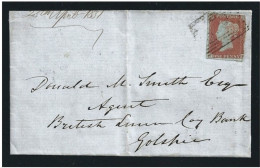 April 1851
Donald M. Smith Esq
Agent
British Linen Coy Bank
Golspie